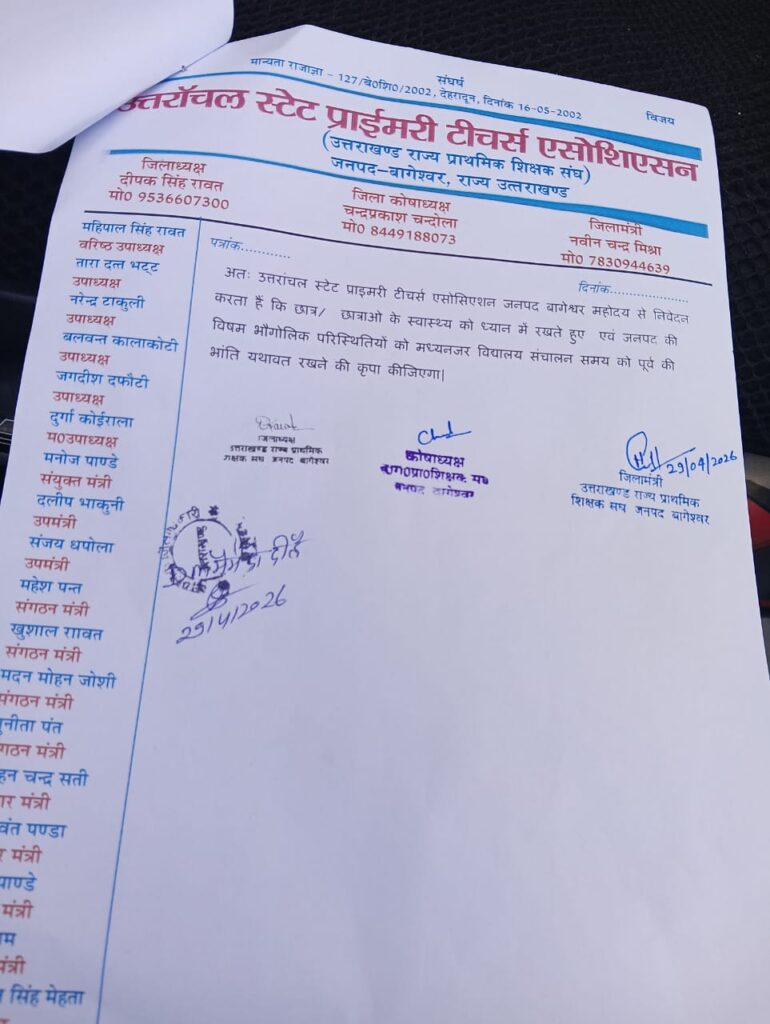 संघर्ष
मान्यता राजाज्ञा - 127/बे0शि0/2002, देहरादून, दिनांक 16-05-2002
विजय
उत्तराँचल स्टेट प्राईमरी टीचर्स एसोशिएसन
(उत्तराखण्ड राज्य प्राथमिक शिक्षक संघ)
जनपद-बागेश्वर, राज्य उत्तराखण्ड
जिलाध्यक्ष
दीपक सिंह रावत
मो0 9536607300
जिला कोषाध्यक्ष
चन्द्रप्रकाश चन्दोला
मो0 8449188073
जिलामंत्री
नवीन चन्द्र मिश्रा
मो0 7830944639
महिपाल सिंह रावत
वरिष्ठ उपाध्यक्ष
तारा दत्त भट्ट
उपाध्यक्ष
नरेन्द्र टाकुली
उपाध्यक्ष
बलवन्त कालाकोटी
उपाध्यक्ष
जगदीश दफौटी
उपाध्यक्ष
दुर्गा कोईराला
म0उपाध्यक्ष
मनोज पाण्डे
संयुक्त मंत्री
दलीप भाकुनी
उपमंत्री
संजय धपोला
उपमंत्री
महेश पन्त
संगठन मंत्री
खुशाल राावत
संगठन मंत्री
मदन मोहन जोशी
संगठन मंत्री
पंत
मंत्री
चन्द्र सती
मंत्री
पण्डा
मंत्री
पाण्डे
मंत्री
सिंह मेहता
पत्रांक............
दिनांक....................
अतः उत्तरांचल स्टेट प्राइमरी टीचर्स एसोसिएशन जनपद बागेश्वर महोदय से निवेदन
करता हैं कि छात्र/ छात्राओ के स्वास्थ्य को ध्यान में रखते हुए एवं जनपद की
विषम भौगोलिक परिस्थितियों को मध्यनजर विद्यालय संचालन समय को पूर्व की
भांति यथावत रखने की कृपा कीजिएगा|
जिलाध्यक्ष
उत्तराखण्ड राज्य प्राथमिक
शिक्षक संघ जनपद बागेश्वर
कोषाध्यक्ष
जनपद बागेश्वर
29/04/2026
जिलामंत्री
उत्तराखण्ड राज्य प्राथमिक
शिक्षक संघ जनपद बागेश्वर
29/4/2026